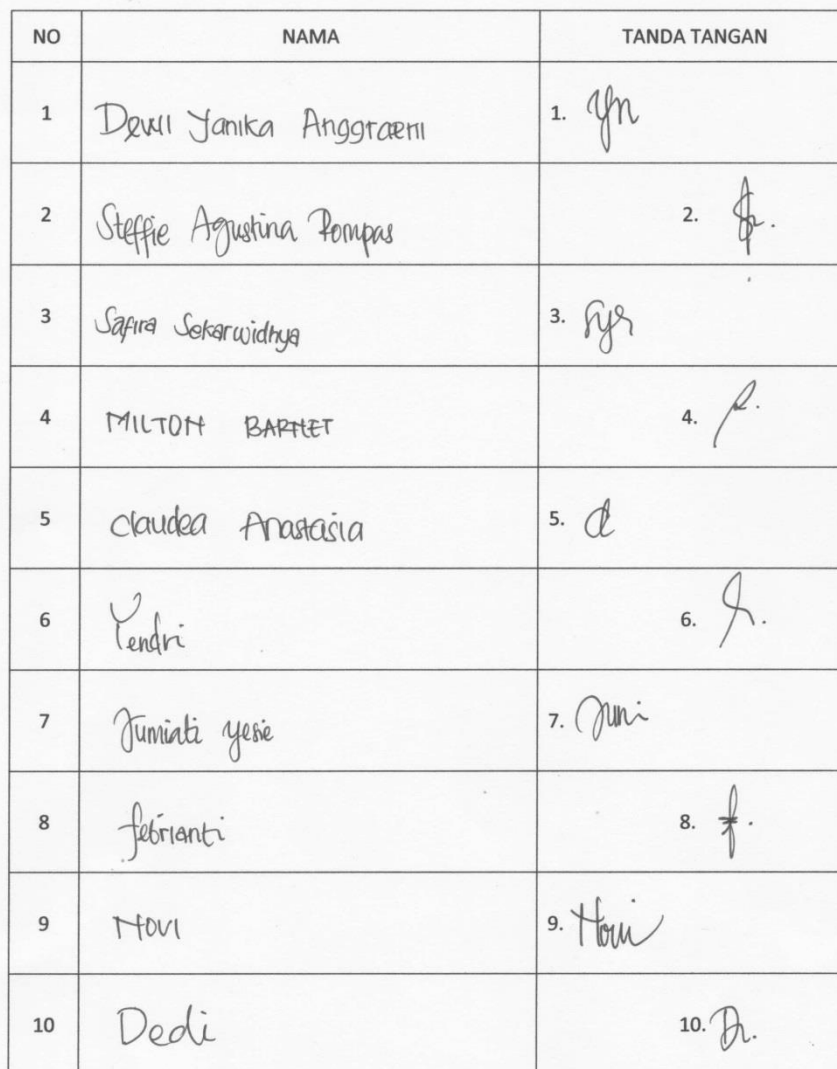 NO NAMA TANDA TANGAN
1 Dewi Yanika Anggraeni 1. Yn
2 Steffie Agustina Rompas 2.
3 Safira Sekarwidhya 3.
4 MILTON BARNET 4.
5 Claudea Anastasia 5.
6 Yendri 6.
7 Jumiati yesie 7. Juni
8 febrianti 8. f.
9 NOVI 9. Novi
10 Dedi 10.